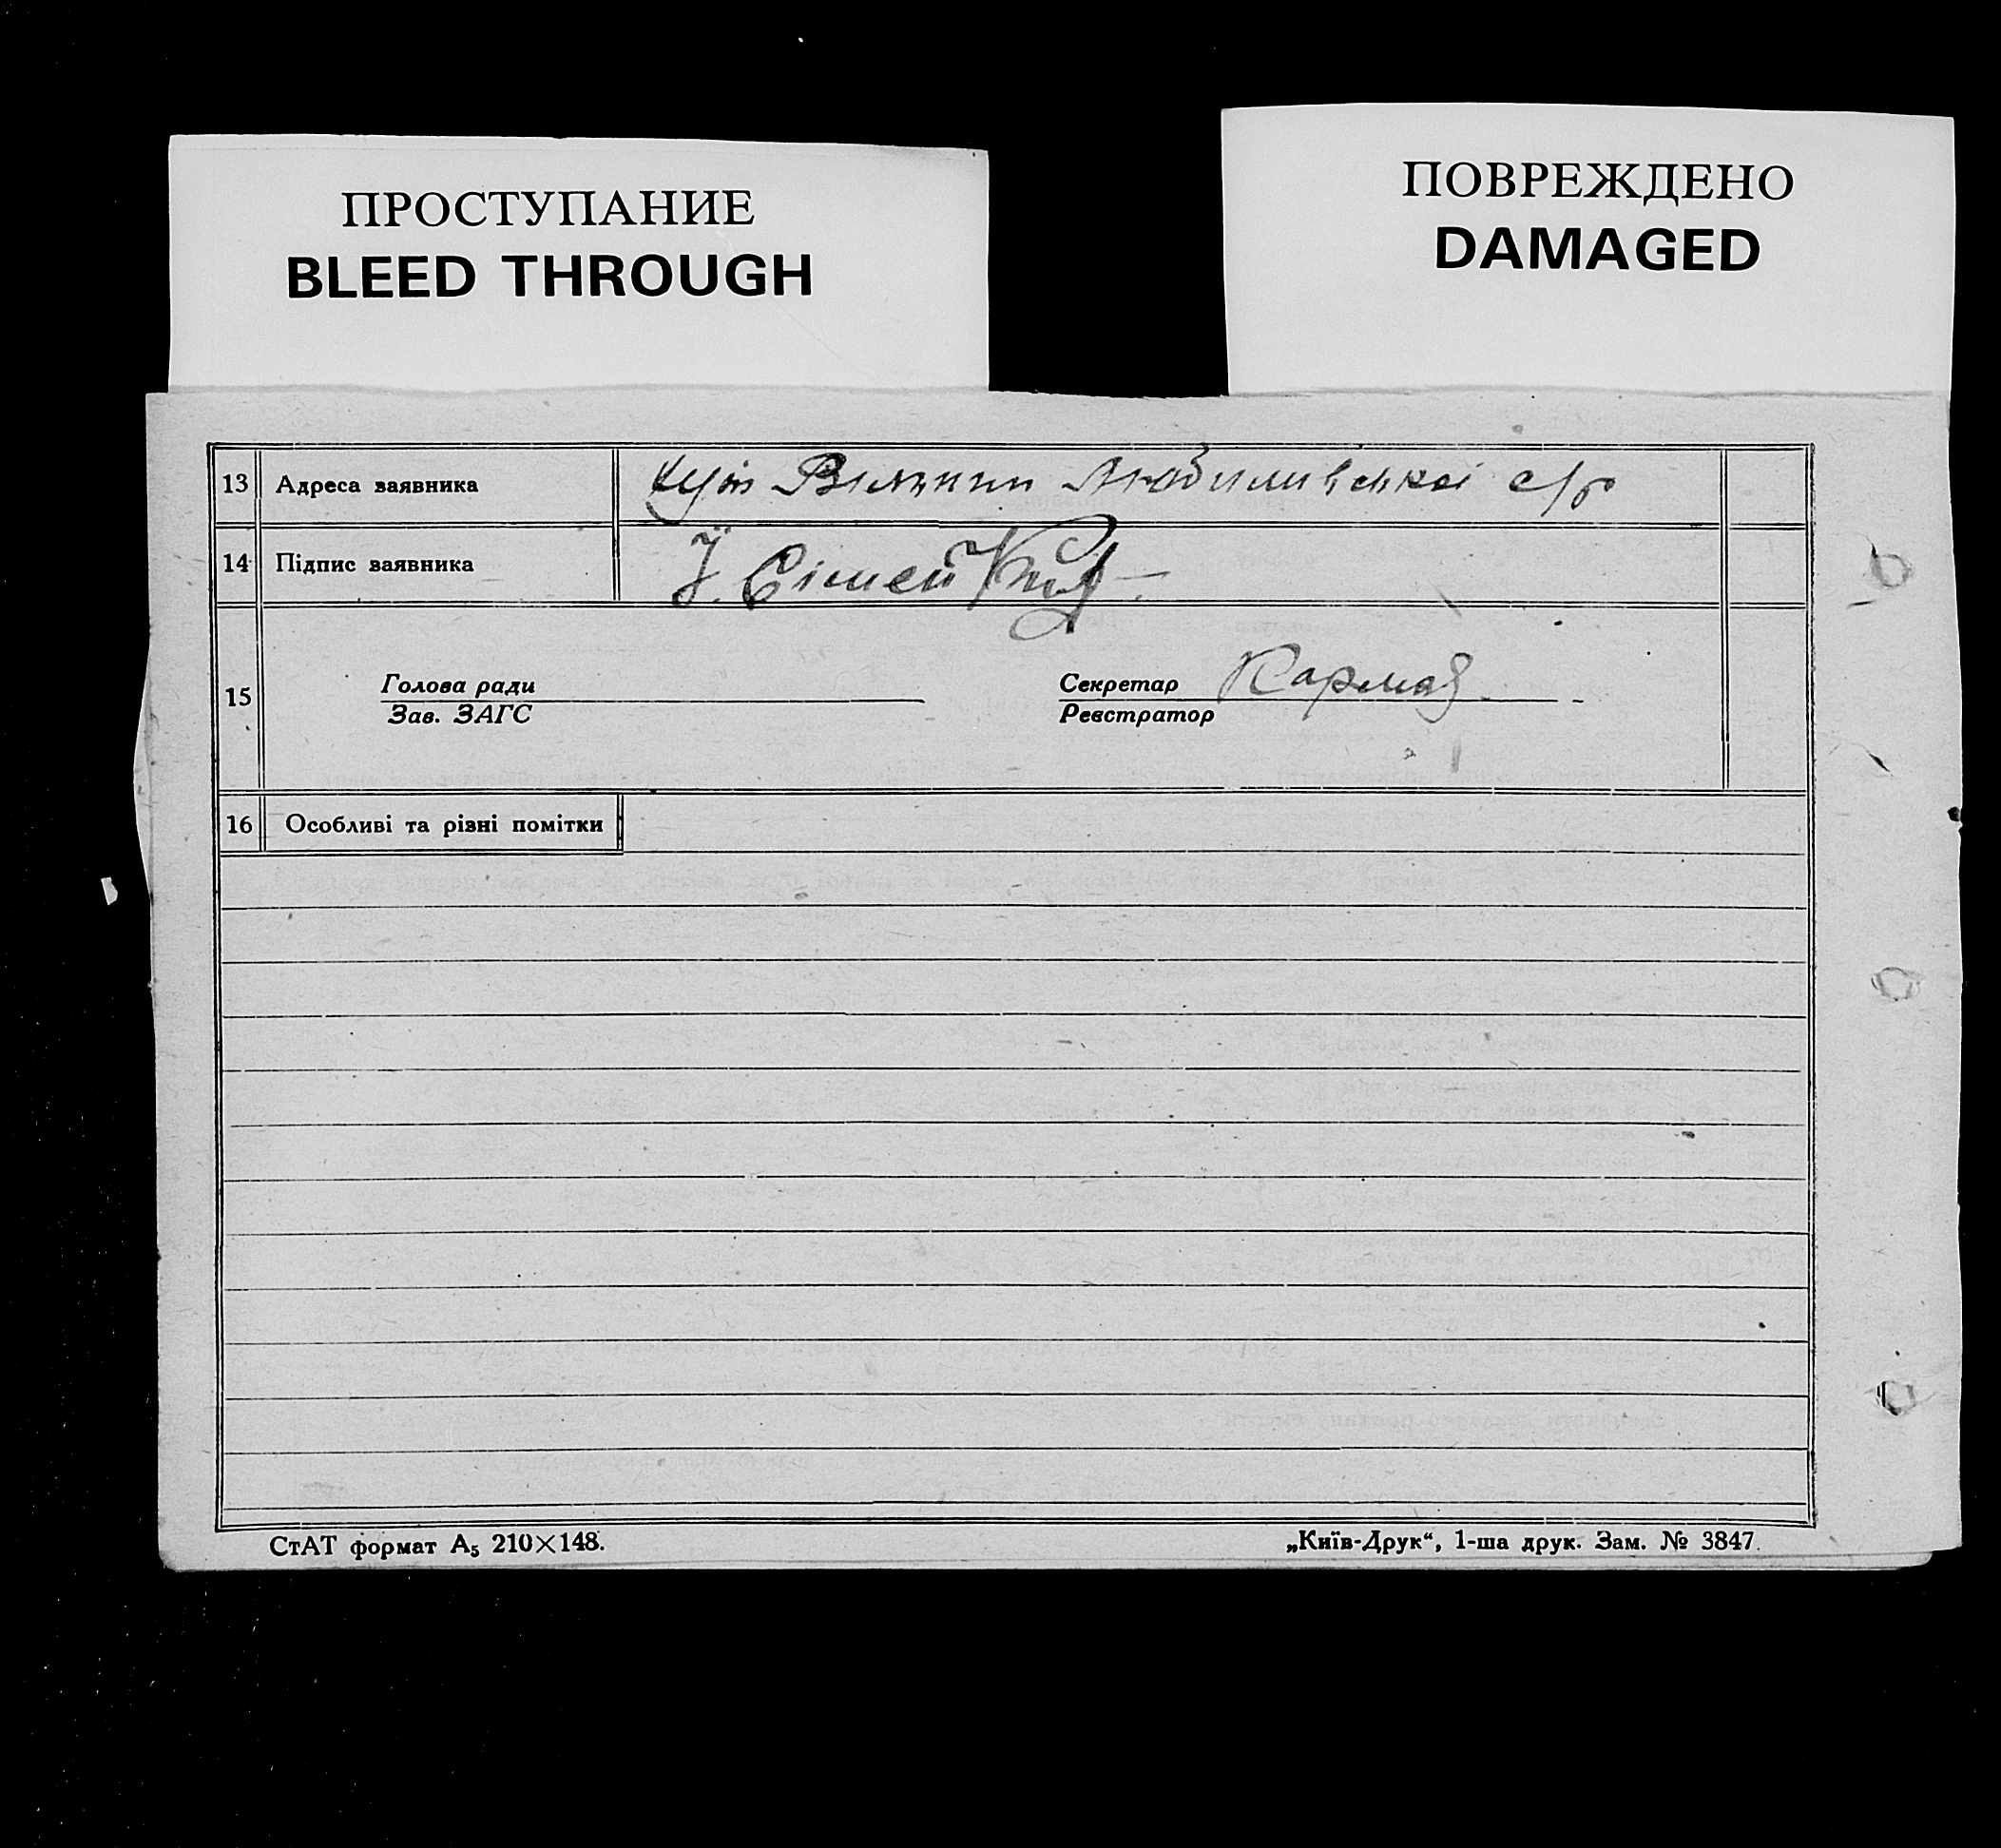 ПРОСТУПАНИЕ
BLEED THROUGH
ПОВРЕЖДЕНО
DAMAGED
13 Адреса заявника с/р
14 Підпис заявника
15 Голова ради Секретар
Зав. ЗАГС Реєстратор
16 Особливі та різні помітки
СтАТ формат А₅ 210×148. „Київ-Друк“, 1-ша друк. Зам. № 3847.